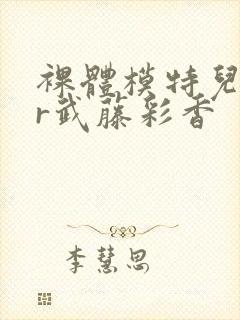 裸體模特兒
r武藤彩香
李慧思